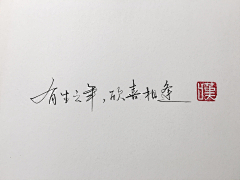 有生之年，欣喜相逢
漢